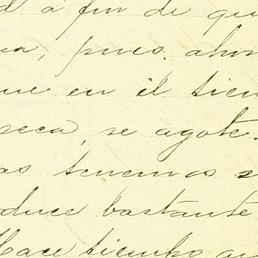 d á fin de qu
ua, pues ahor
ue en él tien
seca, se agote.
as tenemos s
oduce bastante
Hace tiempo qu